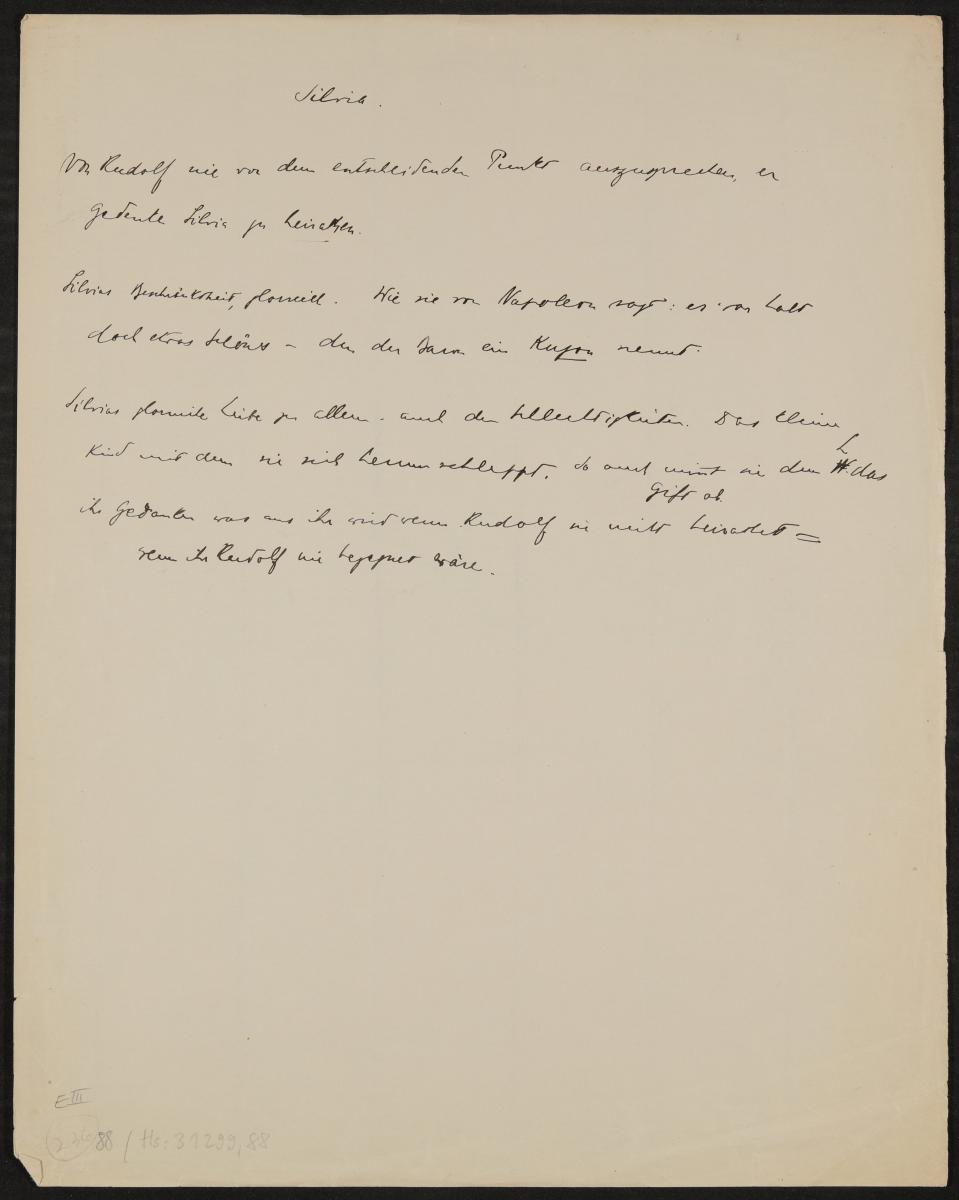 Silvia.
Von Rudolf nie vor dem entscheidenden Punkt auszusprechen, er
gedenke Silvia zu heirathen.
Silvias Beschränktheit, glorreich. Wie sie von Napoleon sagt: es war halt
doch etwas Schönes – den der Baron ein nennt.
Silvias Liebe zu allem. auch den Schlechtigkeiten. Das kleine
Kind mit dem sie sich herumschleppt. So auch nimmt sie dem L. das
Gift ab.
ihr Gedanke was aus ihr wird wenn Rudolf sie nicht heirathet =
wenn ihr Rudolf nie begegnet wäre.
E III
88 / Hs: 31299,88